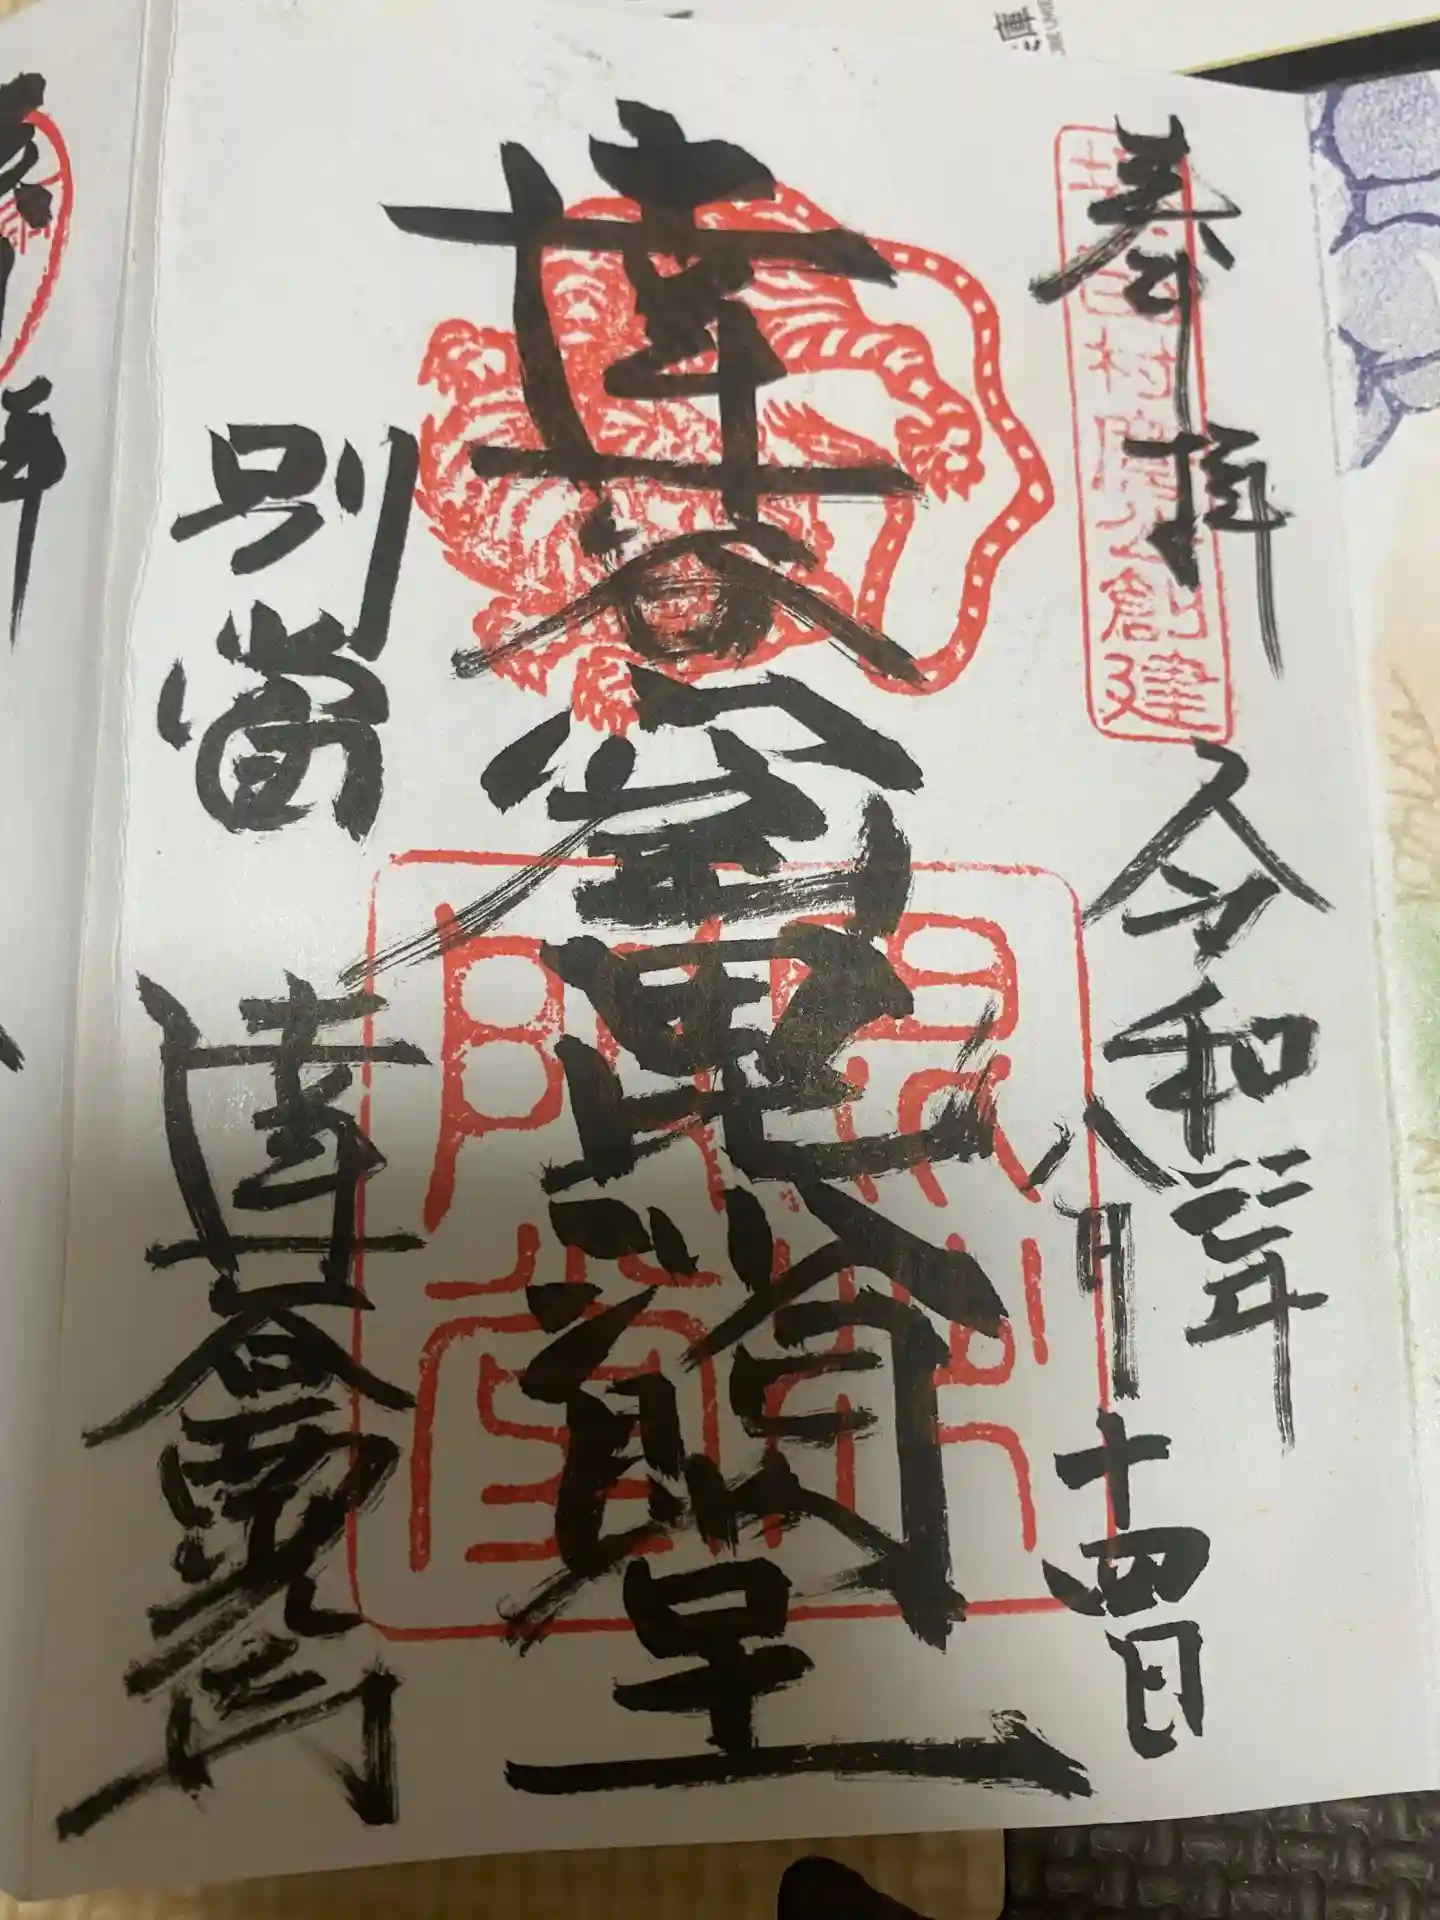 奉拝
田村麿公創建
令和三年
八月十四日
達谷窟毘沙門堂
毘沙門堂
別當 達谷西光寺
庫